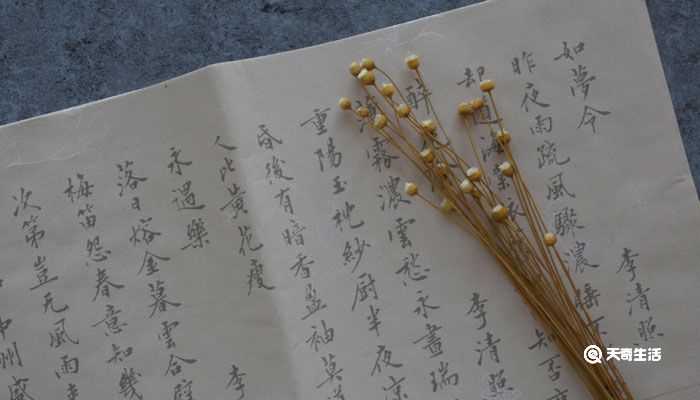 如夢令
李清照
昨夜雨疏風驟濃睡不
却道海棠依
知否
醉
李清照
薄霧濃雲愁永晝瑞
重陽玉枕紗厨半夜凉
昏後有暗香盈袖莫道
人比黃花瘦
永遇樂
李
落日熔金暮雲合璧
梅笛怨春意知幾
次第豈无風雨
中州盛
天奇生活